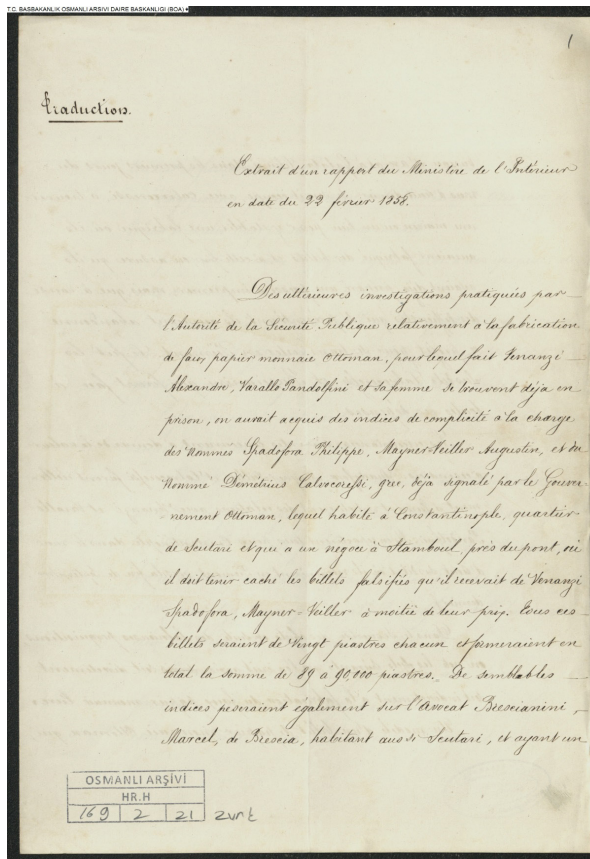 T.C. BASBAKANLIK OSMANLI ARSIVI DAIRE BASKANLIGI (BOA)
1
Traduction.
Extrait d'un rapport du Ministère de l'Intérieur
en date du 22 février 1858.
Des ultérieures investigations pratiquées par
l'Autorité de la Sécurité Publique relativement à la fabrication
de faux papier monnaie Ottoman, pour lequel fait Venanzi
Alexandre, Varallo Pandolfini et sa femme se trouvent déja en
prison, on aurait acquis des indices de complicité à la charge
des nommés Spadofora Philippe, Mayner-Veiller Augustin, et du
nommé Démétrius Calvocoressi, grec, déja signalé par le Gouver-
-nement Ottoman, lequel habite à Constantinople, quartier
de Scutari et qui a un négoce à Stamboul, près du pont, où
il doit tenir caché les billets falsifiés qu'il recevait de Venanzi
Spadofora, Mayner-Veiller à moitié de leur prix. Tous ces
billets seraient de Vingt piastres chacun et formeraient en
total la somme de 89 à 90,000 piastres. De semblables
indices peseraient également sur l'Avocat Brescianini,
Marcel, de Brescia, habitant aussi Scutari, et ayant un
OSMANLI ARŞİVİ
HR.H
169 2 21